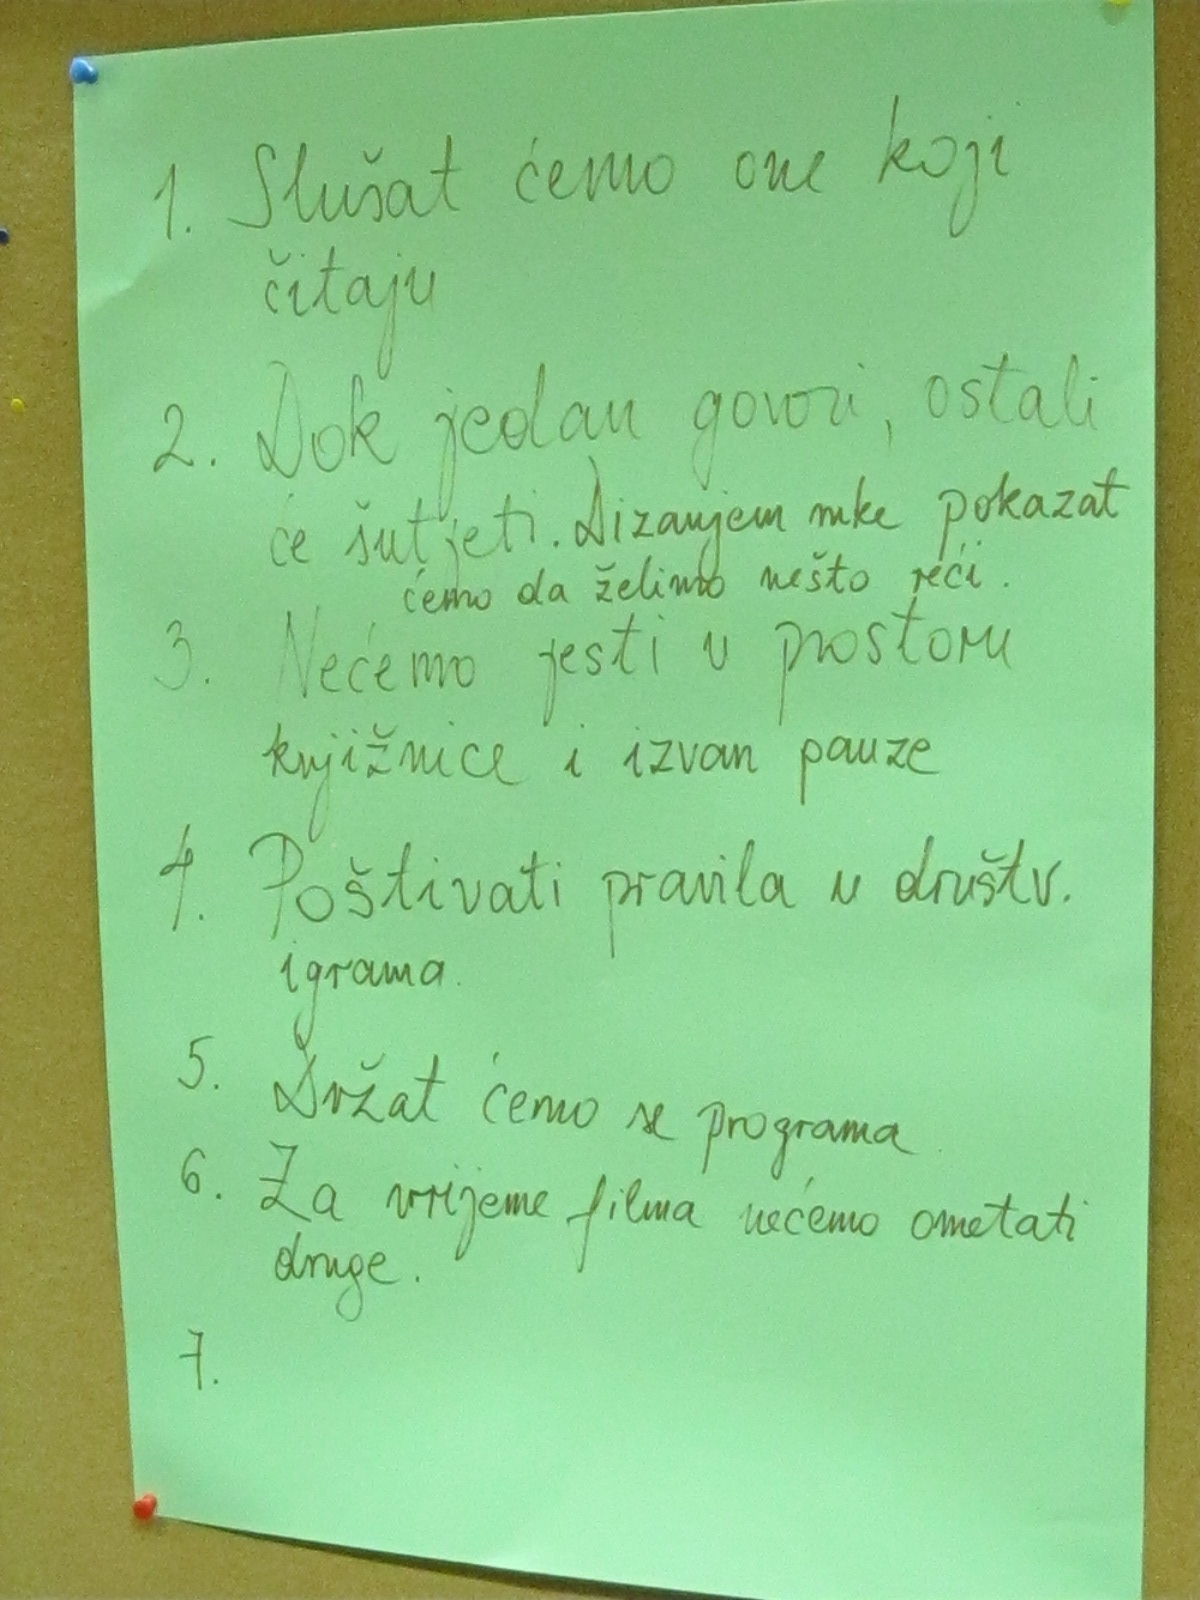 1. Slušat ćemo one koji
čitaju
2. Dok jedan govori, ostali
će šutjeti. Dizanjem ruke pokazat
ćemo da želimo nešto reći.
3. Nećemo jesti u prostoru
knjižnice i izvan pauze
4. Poštivati pravila u društv.
igrama.
5. Držat ćemo se programa.
6. Za vrijeme filma nećemo ometati
druge.
7.